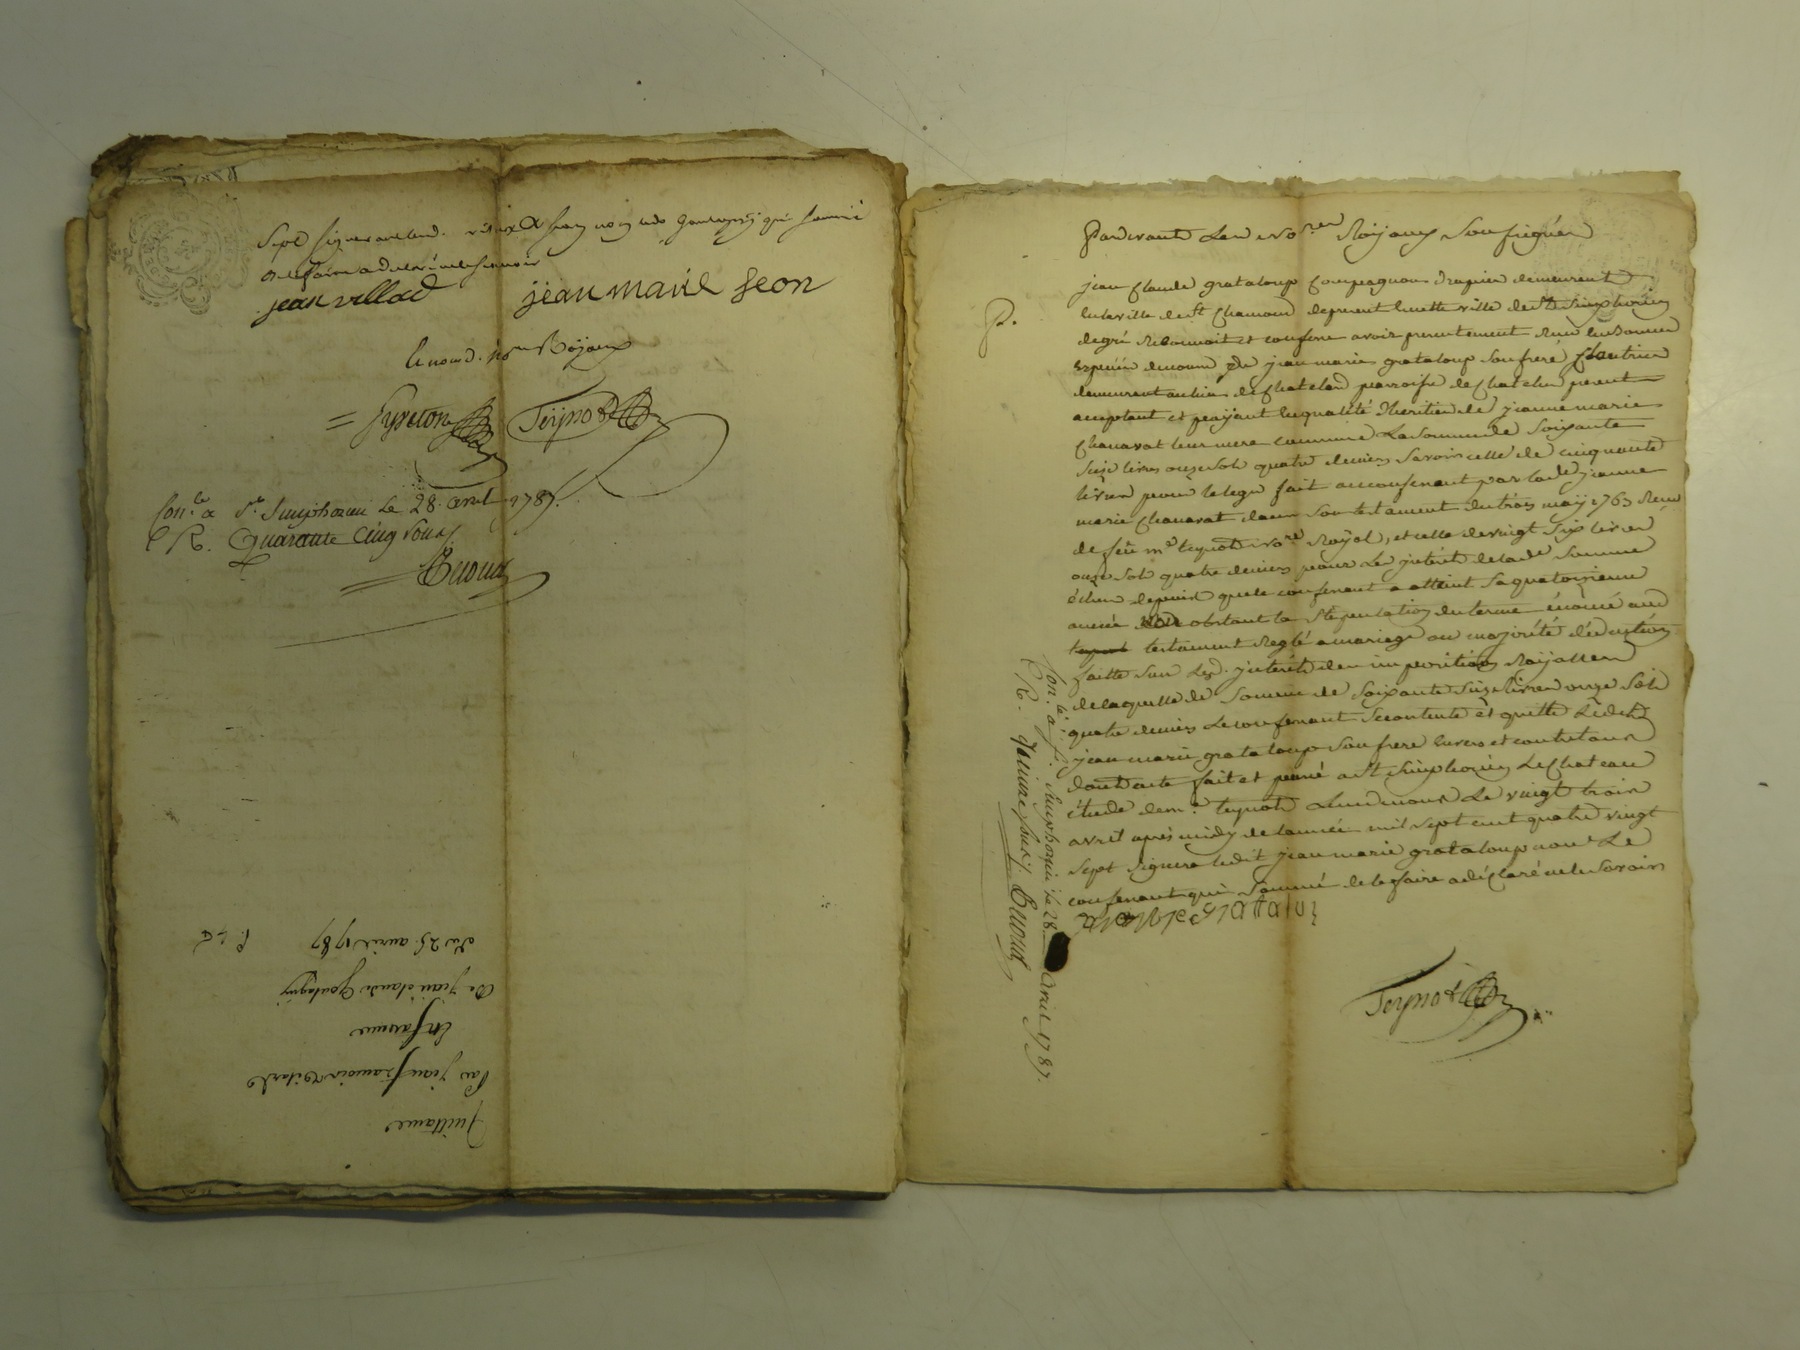 Sept signeront led. Vitard & Seon non led Gontagny qui sommé
de le faire a declaré ne le sçavoir
jean villard
jean marie seon
le nomd. no.re Royaux
Fyreton Teÿnot
Con.lé a St. Simphorien Le 28. avril 1787.
R. Quarante Cinq sous
Benoud
Quittance
Par jean françois Vitard
En faveur
De jean claude Gontagny
du 25 avril 1787
Pardevant Les No.res Royaux Soussignés
P.
jean Claude grataloup Compagnon drapier demeurant
en la ville de St. Chamond de present en cette ville de St. Simphorien
de gré Reconnoit et confesse avoir presentement Reçu en bonnes
espèces de cours de jean marie grataloup son frere
demeurant au lieu de Chatelard parroisse de Chatelus present
acceptant et payant en qualité d'heritier de jeanne marie
Chanavat leur mere commune La somme de Soixante
Seize livres onze sols quatre deniers Savoir celle de cinquante
livres pour le legs fait au confessant par lad.e jeanne
marie Chanavat dans son testament du trois may 1763 Reçu
de feu m.e teynot No.re Royal, et celle de vingt Six livres
onze sols quatre deniers pour Les interêts de lad.e Somme
échus depuis que le confessant a atteint sa quatorzieme
année non obstant la Stipulation du terme énoncé aud
testament Reglé a mariage ou majorité déduction
faitte sur Lesd. interêts des impositions Royalles
de laquelle de Somme de Soixante Seize livres onze Sols
quatre deniers Le confessant Se contente et quitte Ledit
jean marie grataloup son frere envers et contre tous
dont acte fait et passé a St. Simphorien Le Chateau
étude de m.e teynot L'un de nous Le vingt trois
avril après midy de l'année mil sept cent quatre vingt
sept Signera ledit jean marie grataloup non Le
confessant qui Sommé de le faire a déclaré ne le Savoir
grataloup
Teÿnot
Con.lé a St. Simphorien le 28 avril 1787.
R. Quinze Sous. Benoud